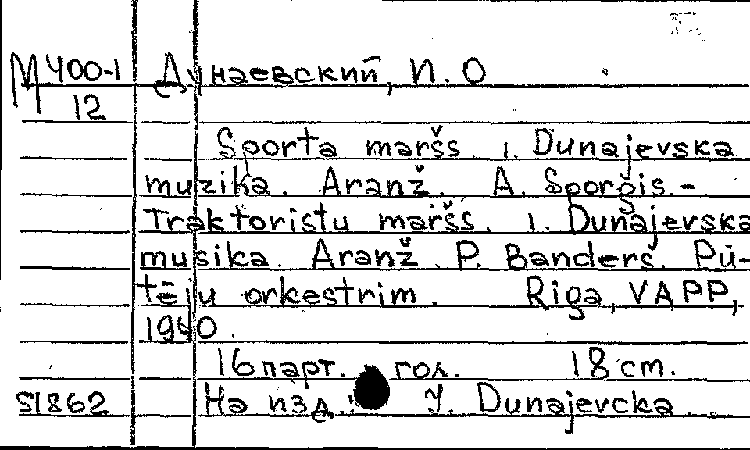 М 400-1 Дунаевский, И. О
12
Sporta maršs. I. Dunajevska
muzika. Aranž. A. Sporģis. -
Traktoristu maršs. I. Dunajevska
musika. Aranž. P. Banders. Pū-
tēju orkestrim. Riga, VAPP,
1940.
16 парт. гол. 18 cm.
51862 На изд.: Y. Dunajevcka.